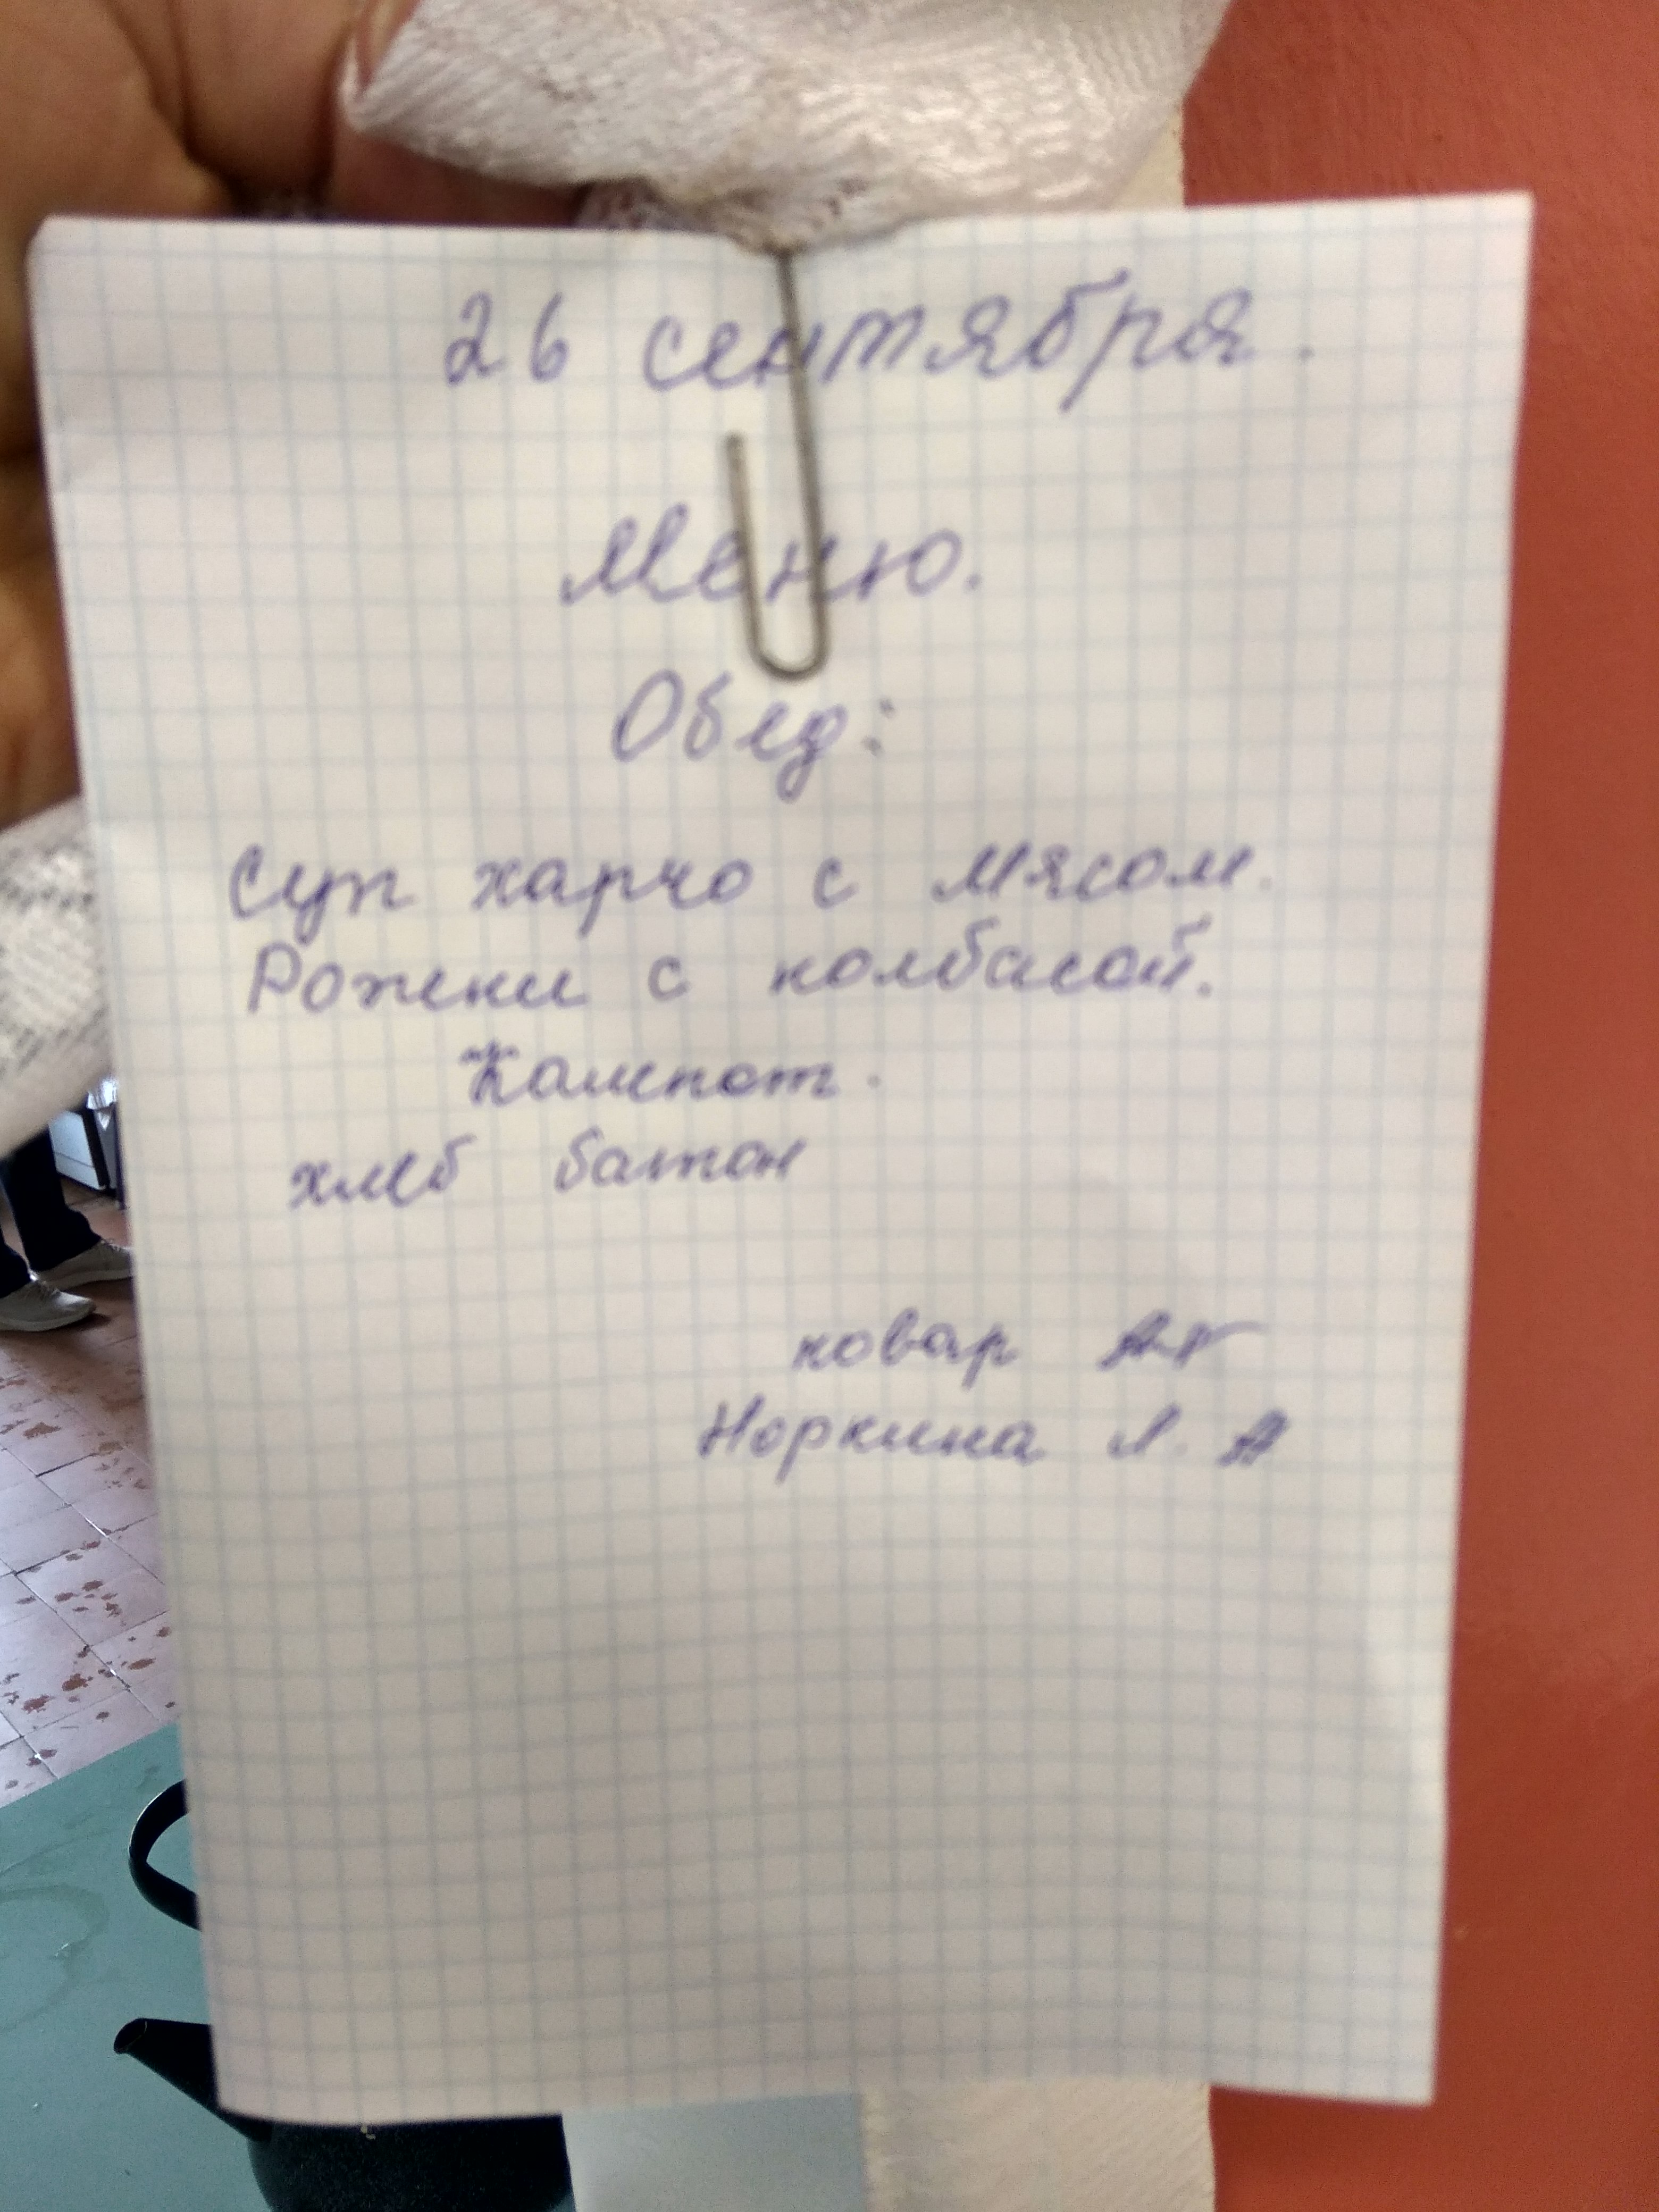 26 сентября.
Меню.
Обед:
Суп харчо с мясом.
Рожки с колбасой.
Компот.
хлеб батон
повар
Норкина Л. А